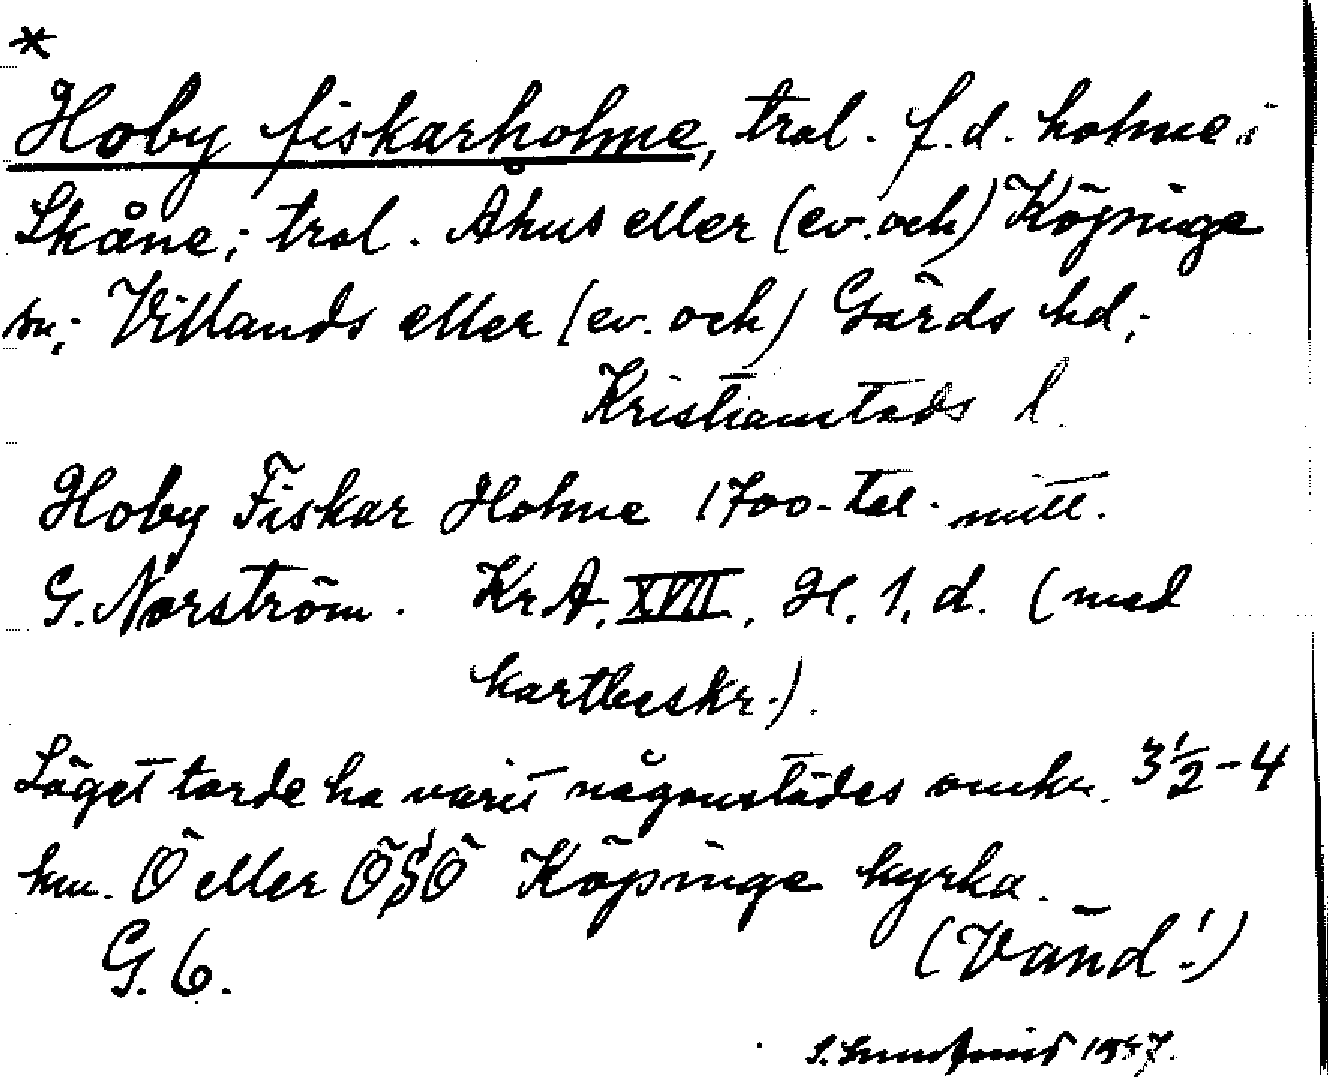 *
Hoby fiskarholme, trol. f.d. holme i
Skåne; trol. Åhus eller (ev. och) Köpinge
sn; Villands eller (ev. och) Gärds hd;
Kristianstads l.
Hoby Fiskar Holme 1700-tal. mitt.
G. Norström. Kr.A. XVII. H. 1. d. (med
kartbeskr.).
Läget torde ha varit någonstädes omkr. 3½-4
km. Ö eller ÖSÖ Köpinge kyrka.
G. 6. (Vänd!)
S.